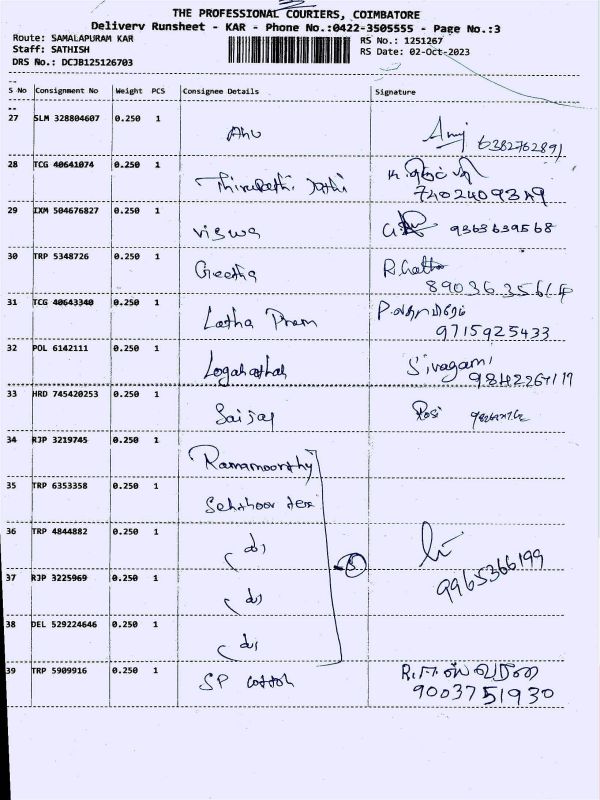 THE PROFESSIONAL COURIERS, COIMBATORE
Delivery Runsheet - KAR - Phone No.:0422-3505555 - Page No.:3
Route: SAMALAPURAM KAR
RS No.: 1251267
Staff: SATHISH
RS Date: 02-Oct-2023
DRS No.: DCJB125126703
S No Consignment No Weight PCS Consignee Details Signature
27 SLM 328804607 0.250 1 Anu 6382762891
28 TCG 40641074 0.250 1 Thirupathi Jothi
7402409349
29 IXM 504676827 0.250 1 viswa 9363639568
30 TRP 5348726 0.250 1 Geetha
31 TCG 40643340 0.250 1 Latha Prem
9715925433
32 POL 6142111 0.250 1 Sivagami
33 HRD 745420253 0.250 1 Rosi
34 RJP 3219745 0.250 1 Ramamoorthy
35 TRP 6353358 0.250 1
36 TRP 4844882 0.250 1
37 RJP 3225969 0.250 1 9965366199
38 DEL 529224646 0.250 1
39 TRP 5909916 0.250 1 SP cotton
9003751930